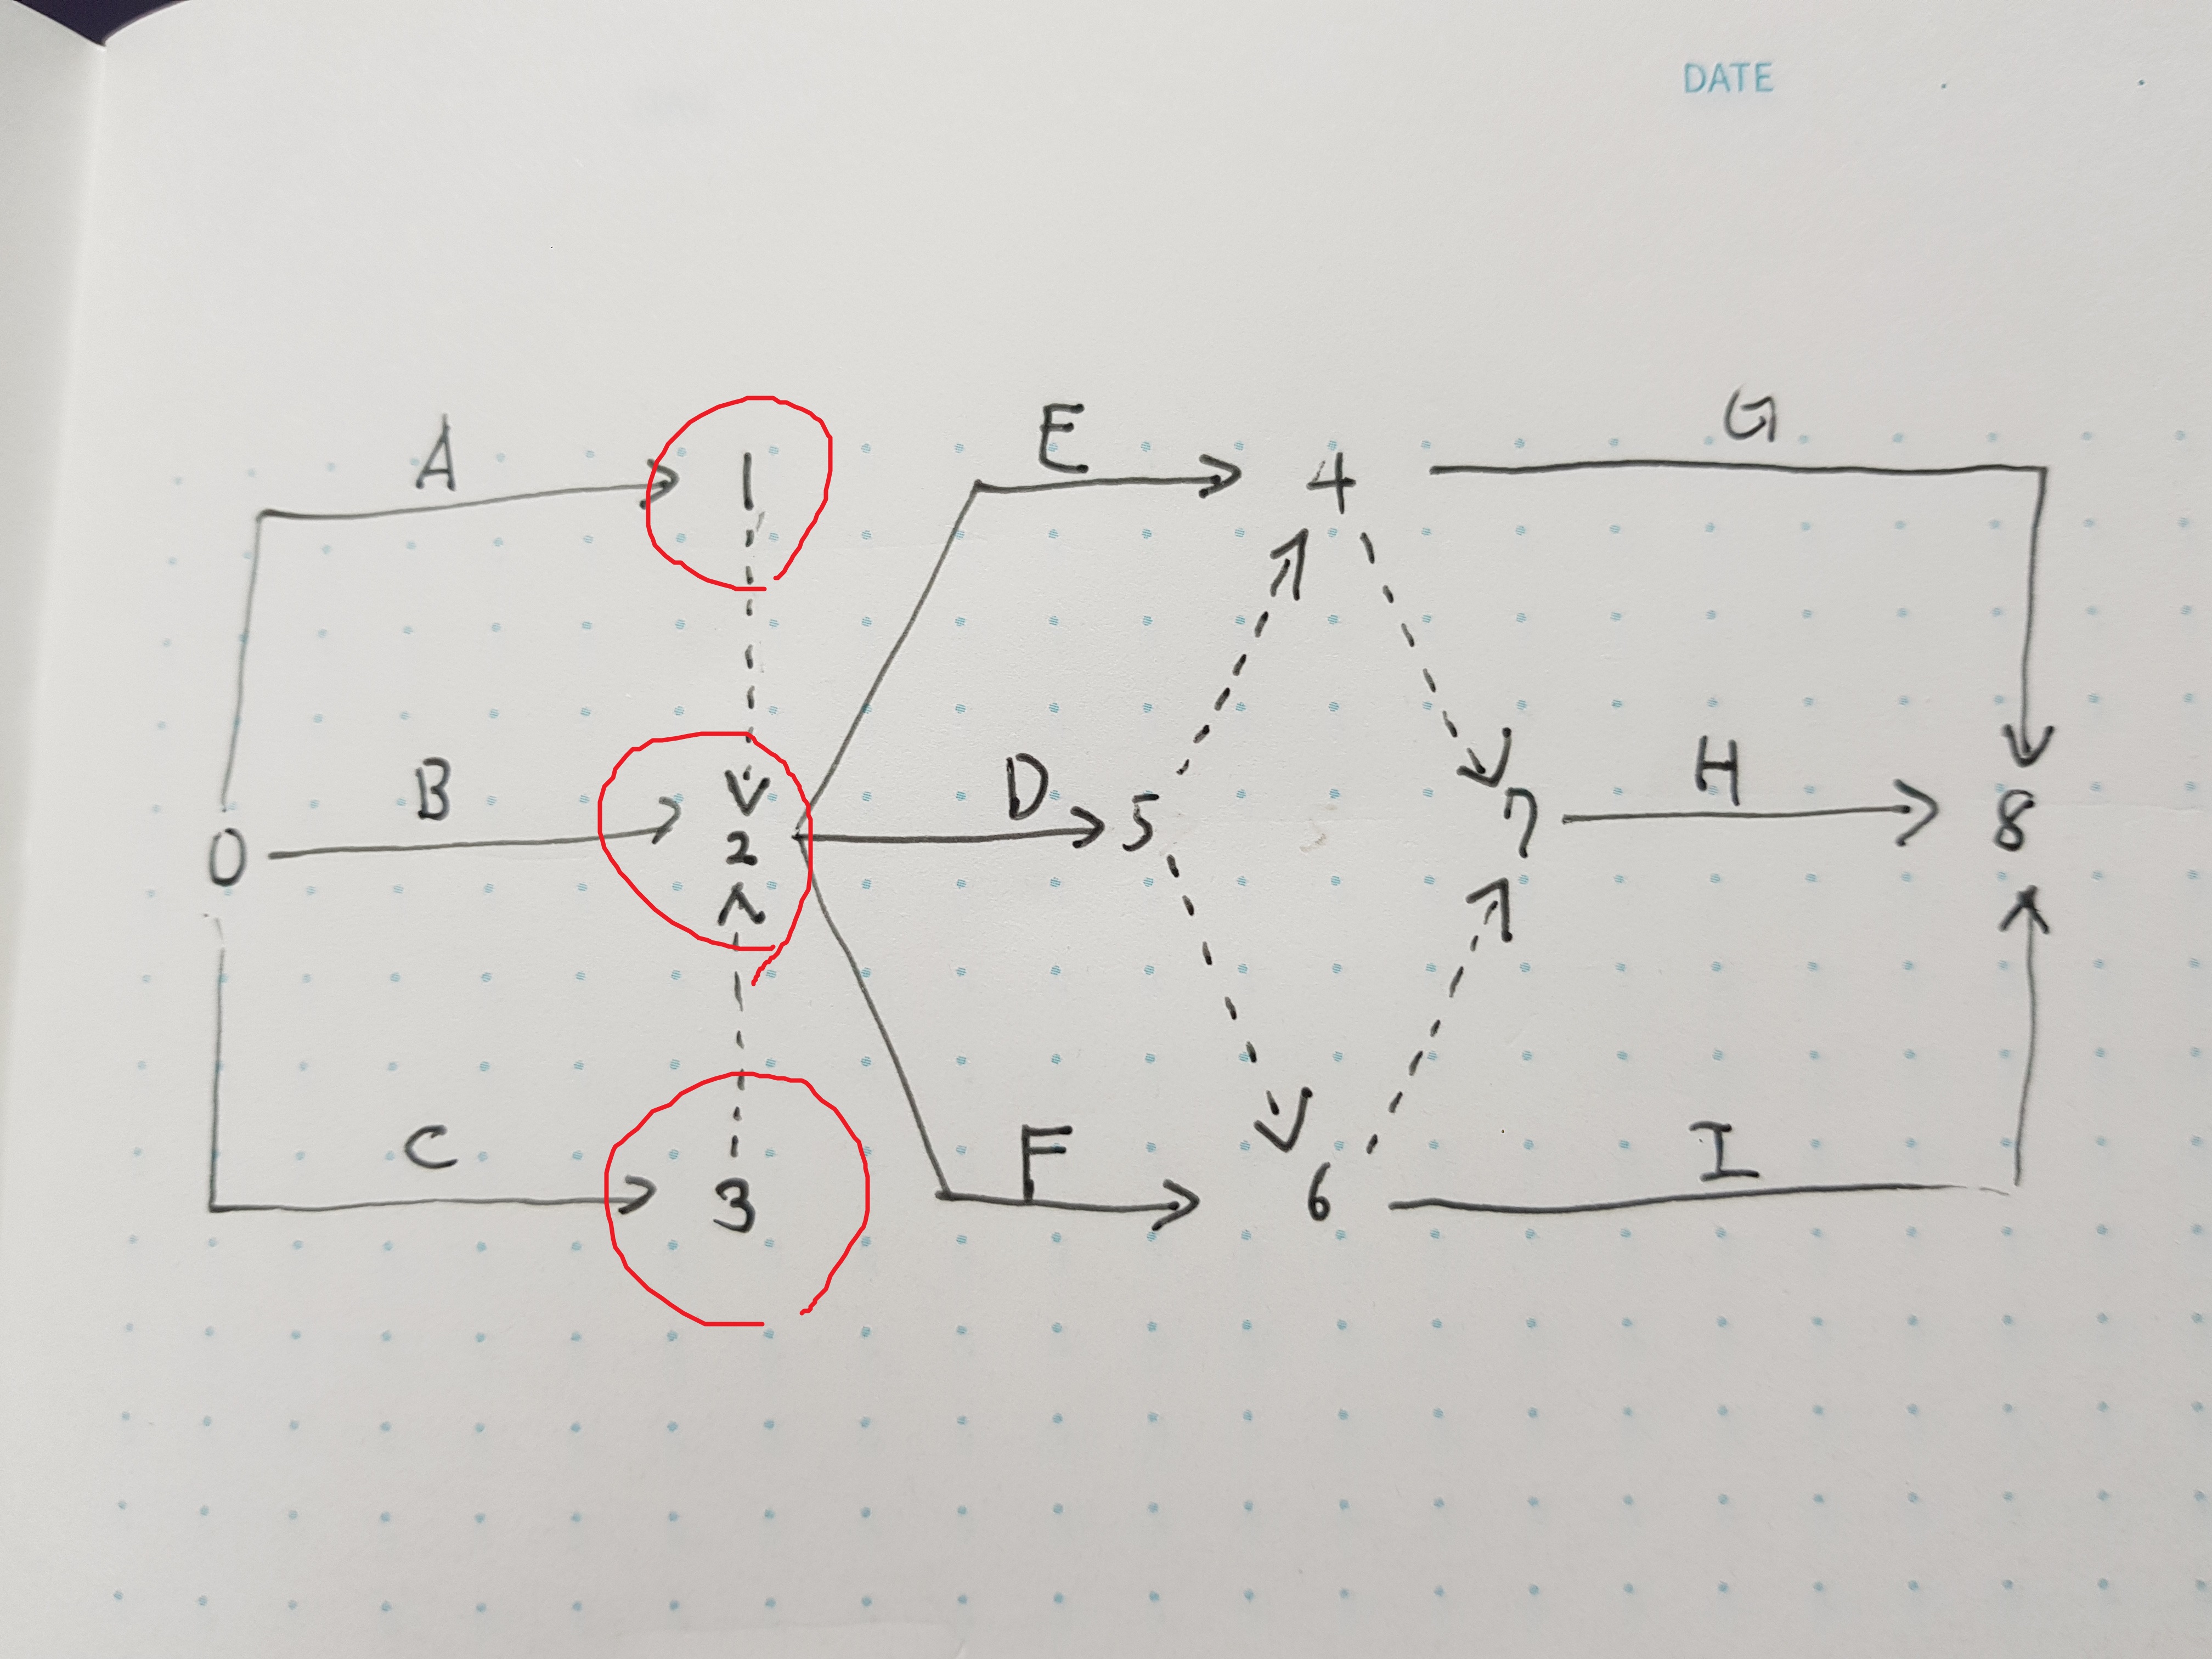 DATE
A
E
G
1
4
B
D
H
0
2
5
7
8
C
F
I
3
6